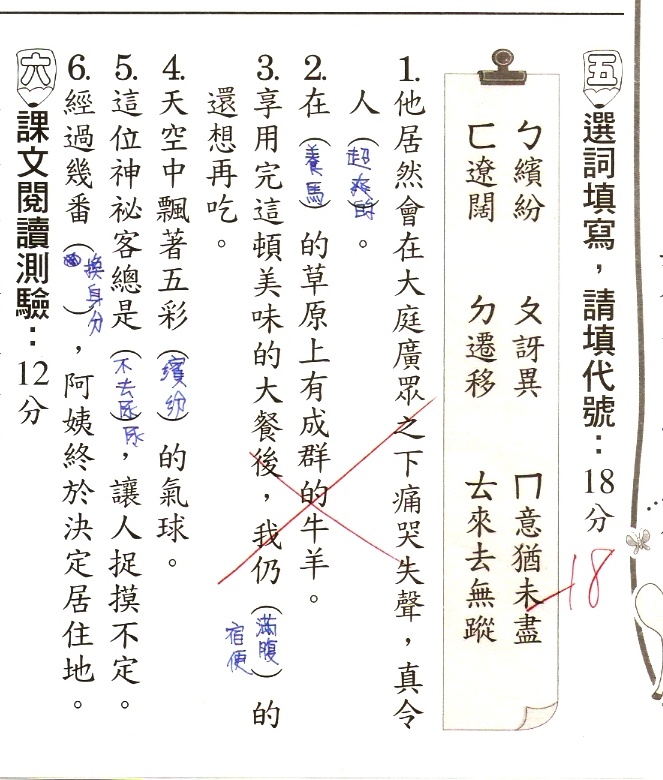 五、選詞填寫,請填代號:18分
ㄅ繽紛 ㄆ訝異 ㄇ意猶未盡
ㄈ遼闊 ㄉ遷移 ㄊ來去無蹤
-18
1.他居然會在大庭廣眾之下痛哭失聲,真令
人(超爽的)。
2.在(養馬)的草原上有成群的牛羊。
3.享用完這頓美味的大餐後,我仍(滿腹宿便)的
還想再吃。
4.天空中飄著五彩(繽紛)的氣球。
5.這位神祕客總是(不去尿尿),讓人捉摸不定。
6.經過幾番(換身分),阿姨終於決定居住地。
六、課文閱讀測驗:12分